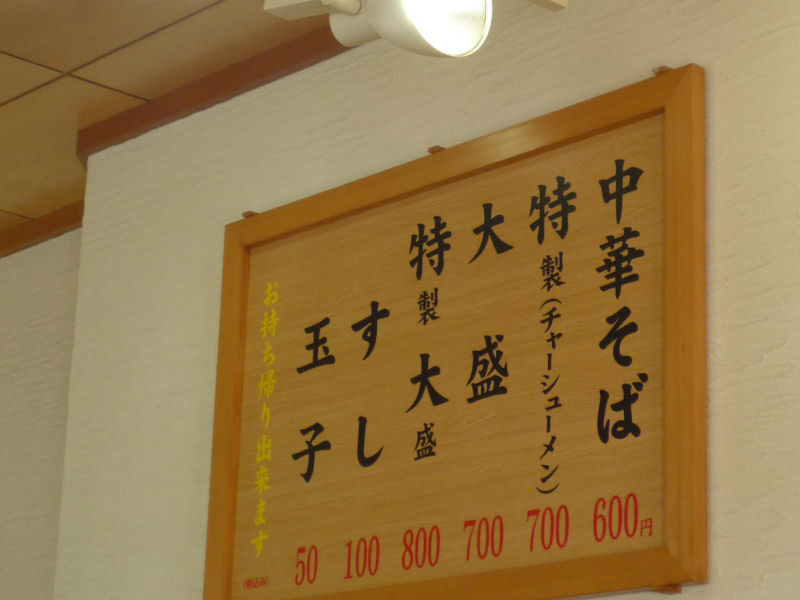 中華そば 600円
特製(チャーシューメン) 700
大盛 700
特製大盛 800
すし 100
玉子 50
お持ち帰り出来ます
(税込み)